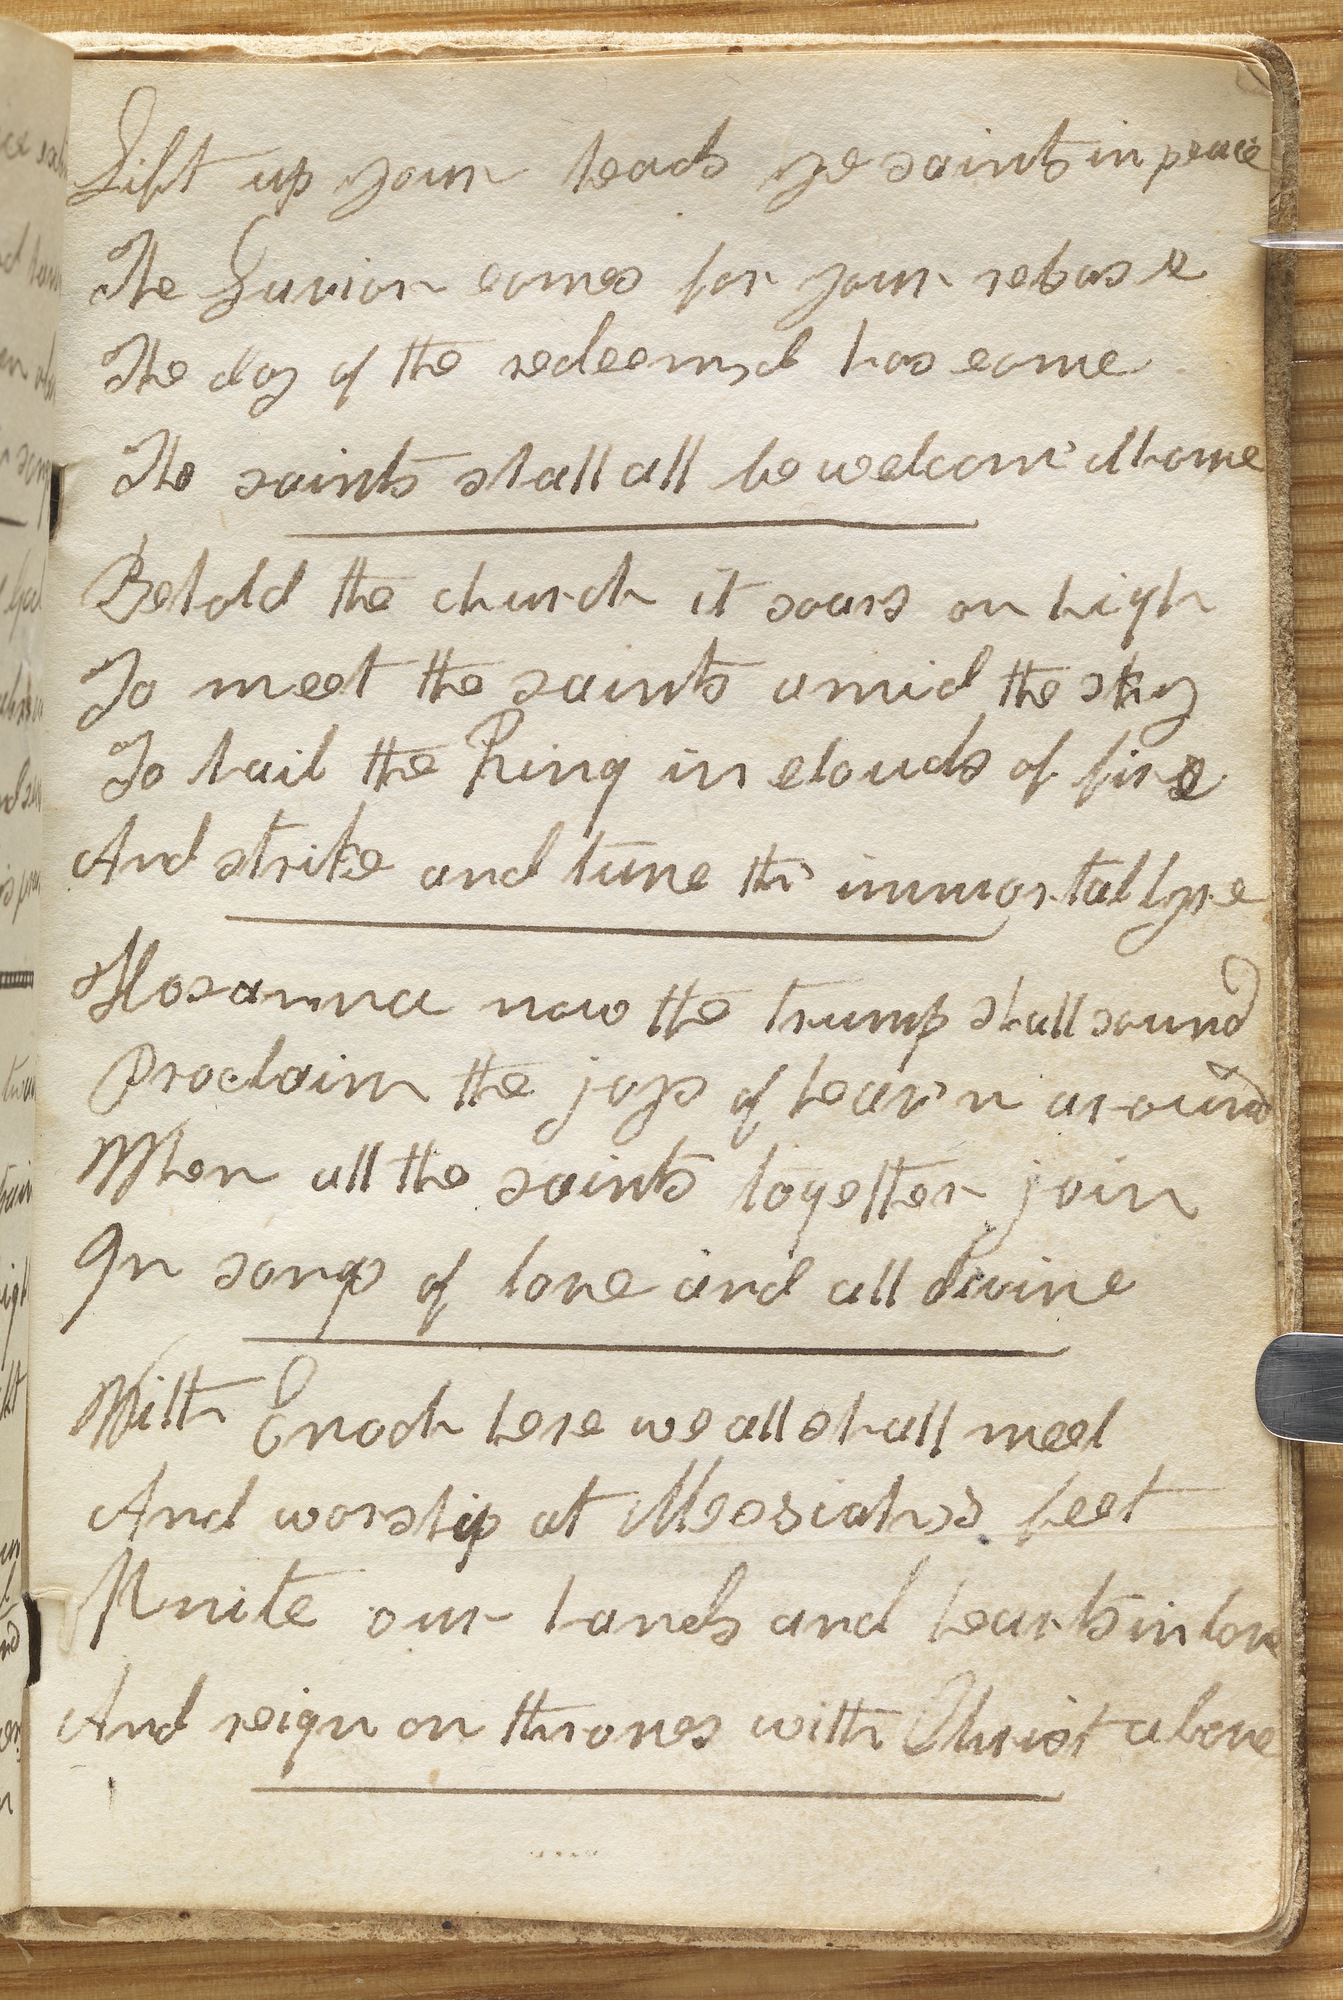 Lift up your heads ye saints in peace
The Savior comes for your release
The day of the redeem'd has come
The saints shall all be welcom'd home
Behold the church it soars on high
To meet the saints amid the sky
To hail the King in clouds of fire
And strike and tune th' immortal lyre
Hosanna now the trump shall sound
Proclaim the joys of heav'n around
When all the saints together join
In songs of love and all divine
With Enoch here we all shall meet
And worship at Messiah's feet
Unite our hands and hearts in love
And reign on thrones with Christ above